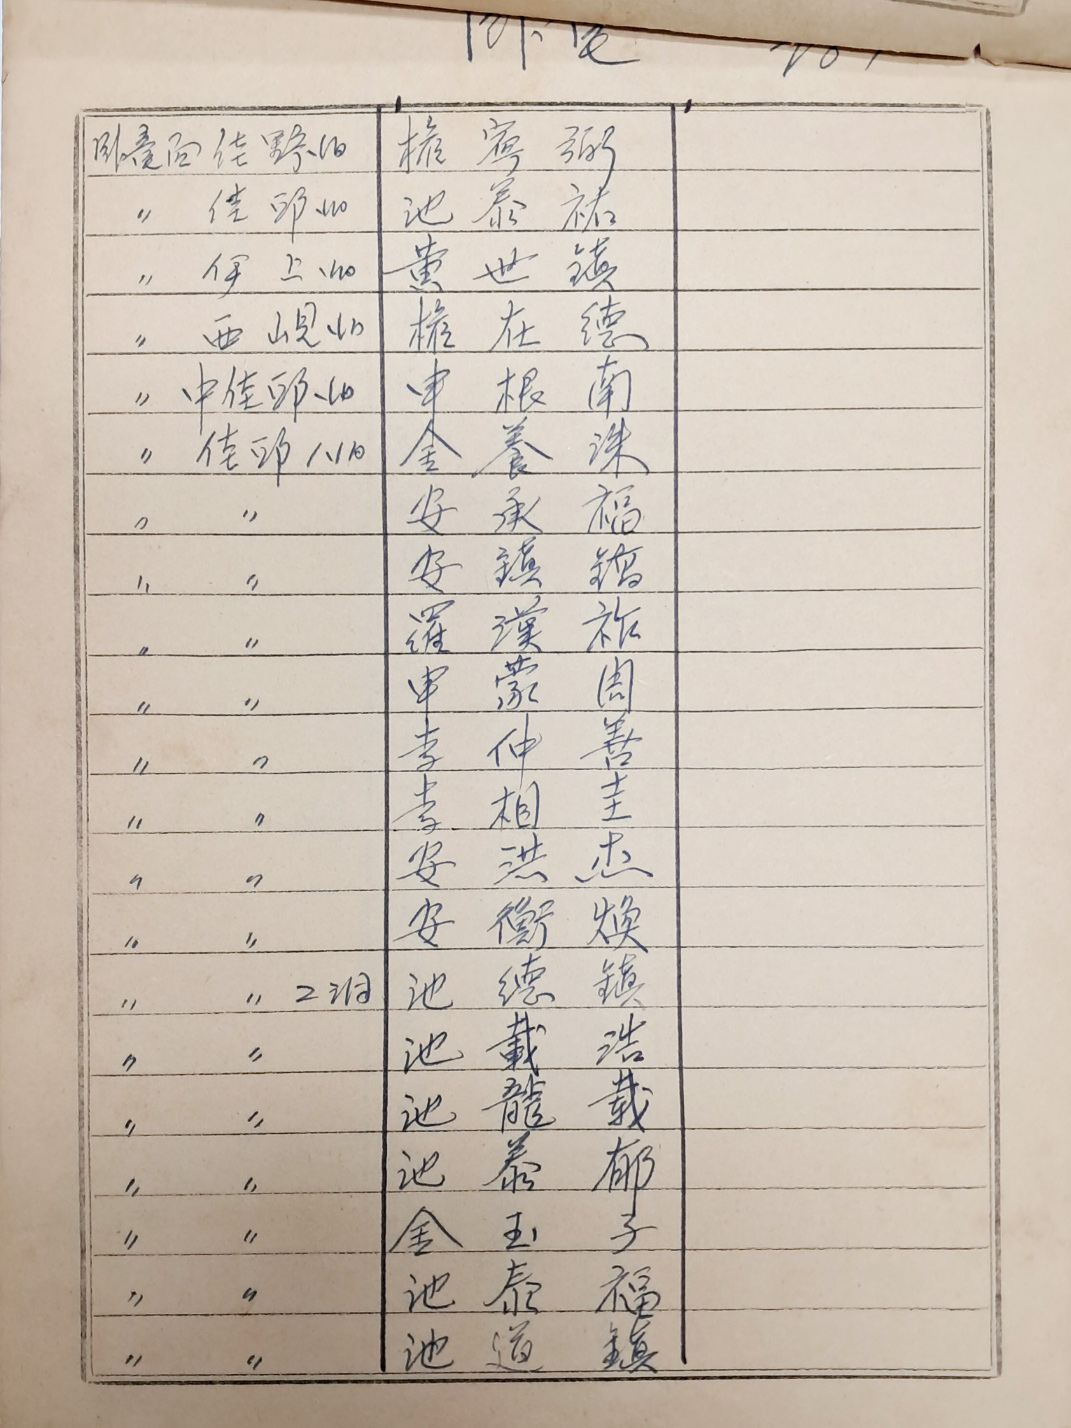 臥龍面 佳野 洞 權 寧 弼
〃 佳 邱 洞 池 泰 祐
〃 伊 上 洞 黄 世 鎮
〃 西 峴 洞 權 在 德
〃 中佳邱 洞 申 根 南
〃 佳 邱 八洞 金 養 洙
〃 〃 安 承 福
〃 〃 安 鎮
〃 〃 羅 漢 祚
〃 〃 申 蒙 周
〃 〃 李 仲 善
〃 〃 李 相 圭
〃 〃 安 洪 杰
〃 〃 安 衡 煥
〃 〃 2洞 池 德 鎮
〃 〃 池 載 浩
〃 〃 池 龍 載
〃 〃 池 泰 郁
〃 〃 金 玉 子
〃 〃 池 泰 福
〃 〃 池 道 鎮